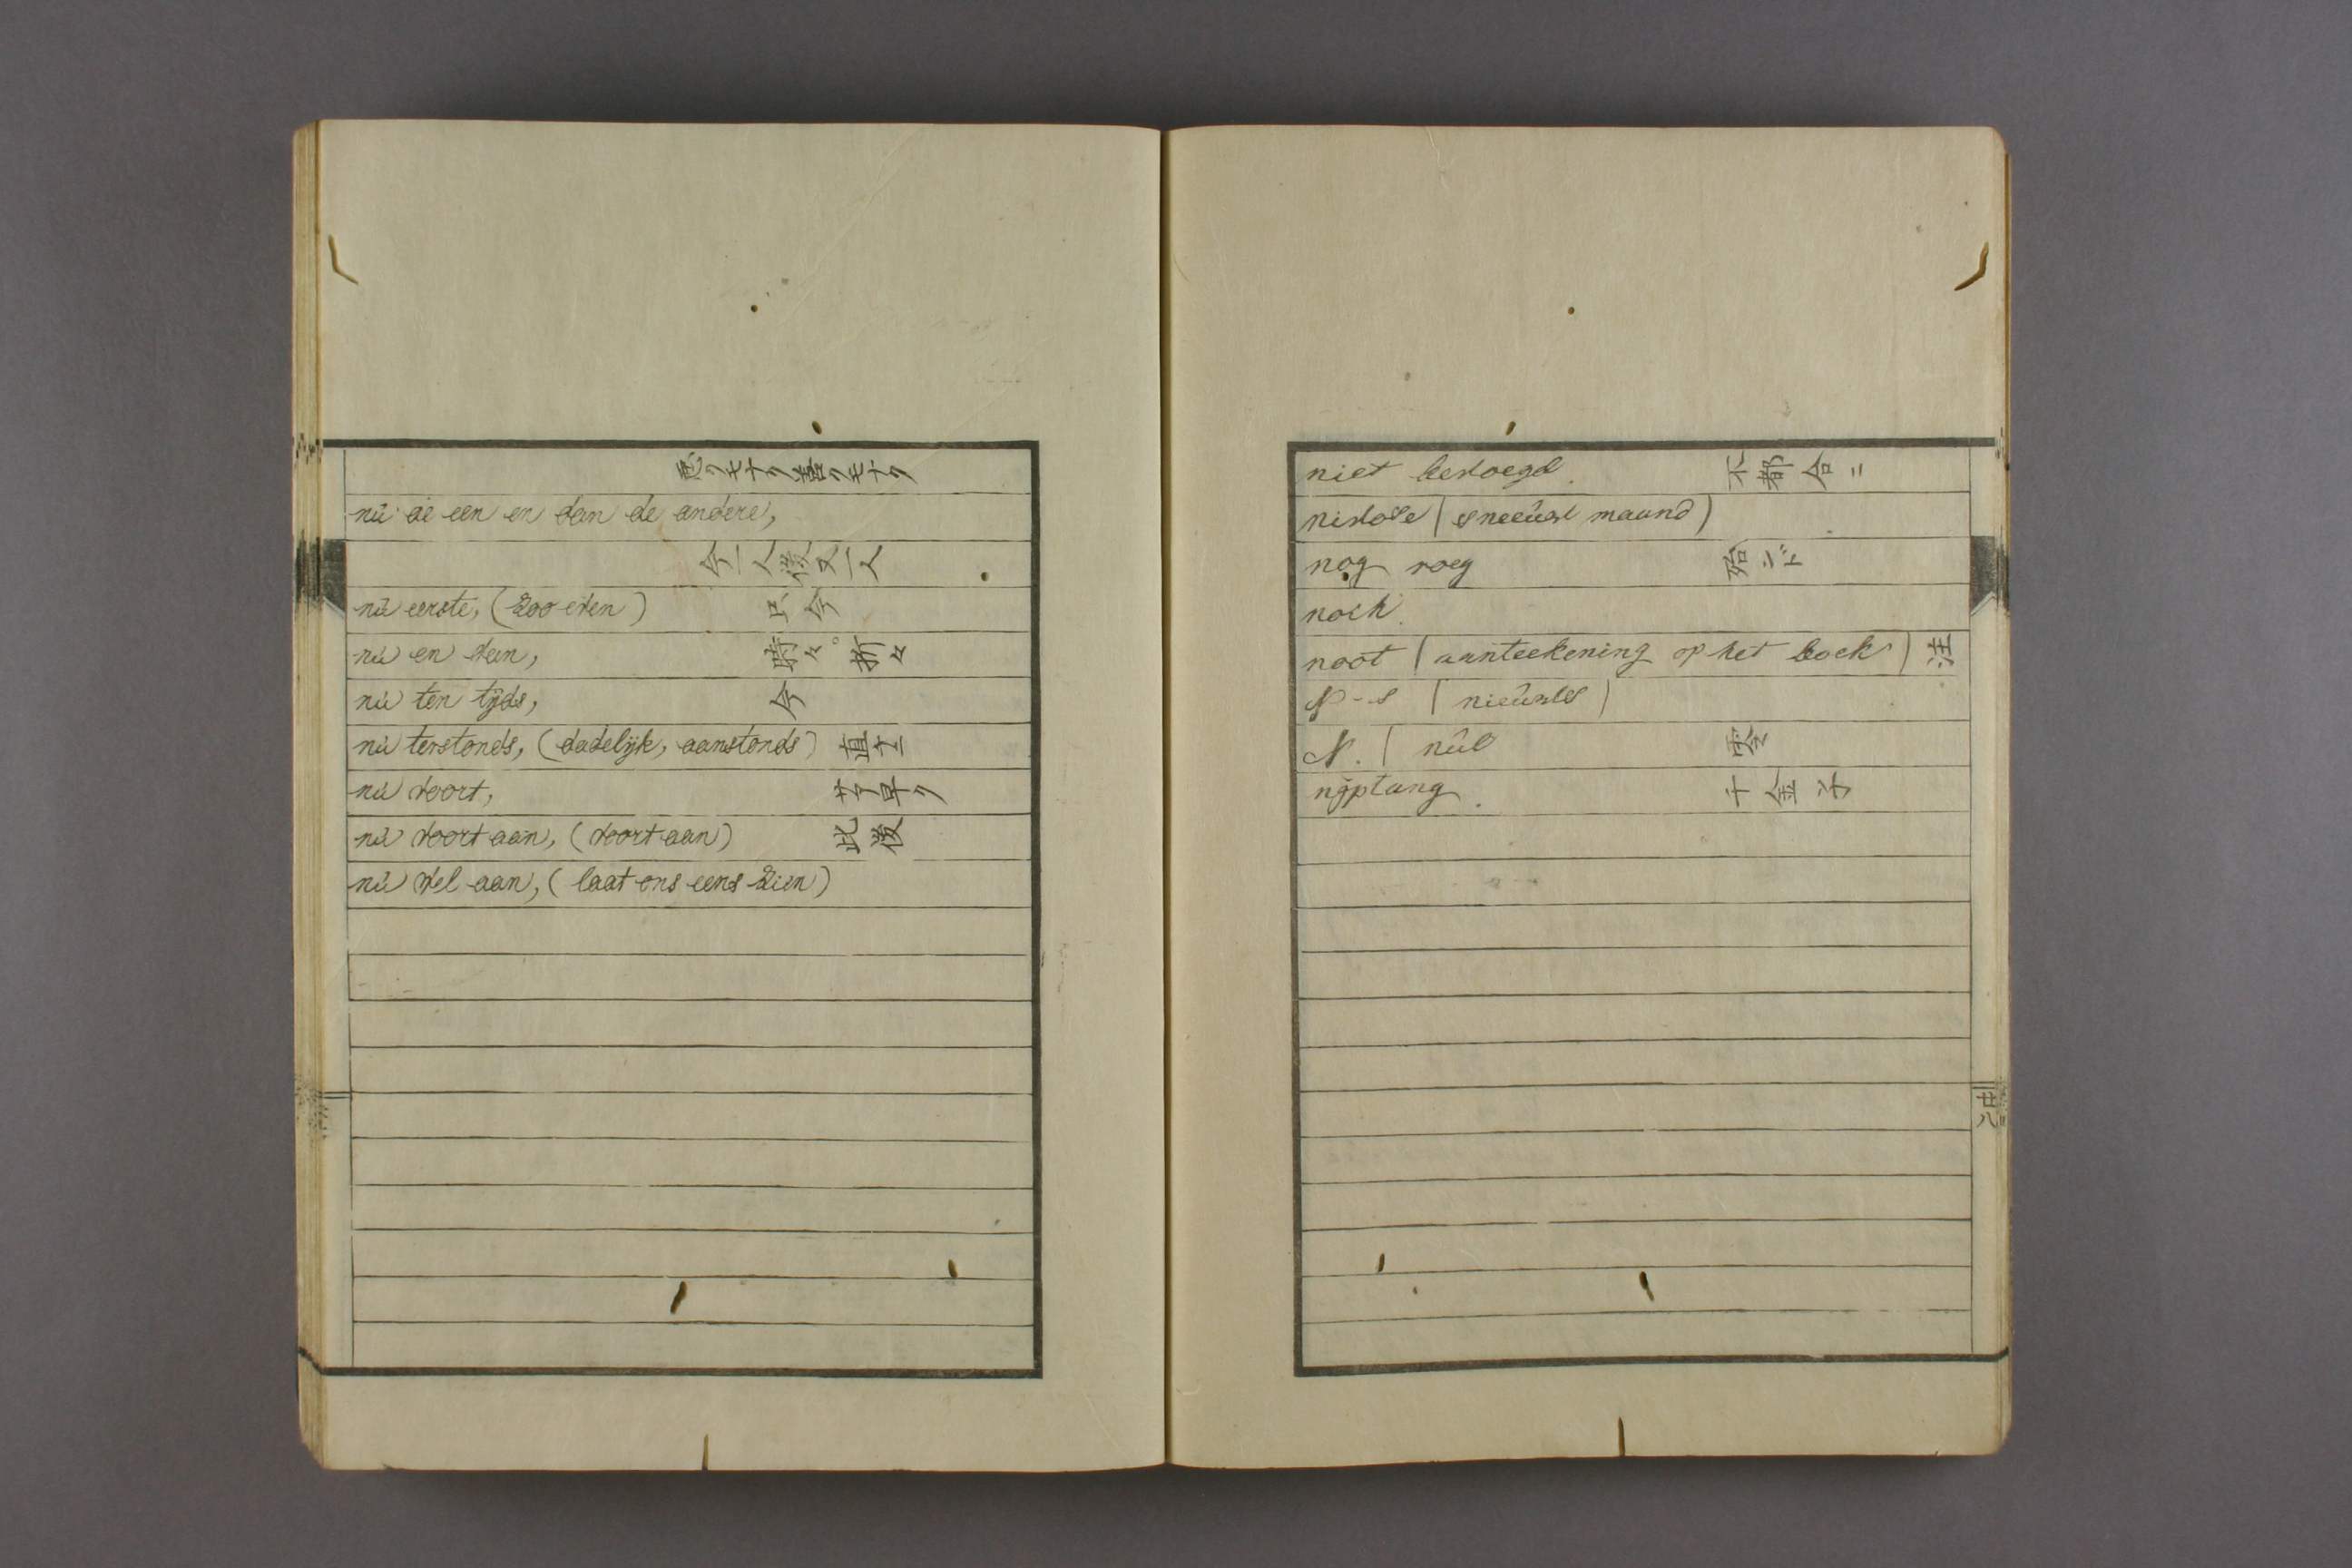 悪クモナク善クモナク
nu de een en dan de andere,
今一人後又一人
nu eerste, (zoo even)
只今
nu en dan,
時々。折々
nu ten tijds,
今
nu terstonds, (dadelijk, aanstonds)
直ニ
nu voort,
早ク
nu voort aan, (voort aan)
此後
nu wel aan, (laat ons eens zien)
niet bevoegd.
不都合ニ
nivose (sneeuw maand)
nog voeg
殆ンド
noch.
noot (aanteekening op het boek)
注
N-s (nieuwls)
N. (nul
零
nijptang.
廿八